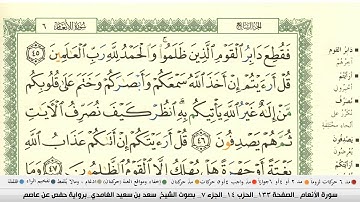 ٦
سورة الأنعام
الجزء السابع
فَقُطِعَ دَابِرُ الْقَوْمِ الَّذِينَ ظَلَمُوا وَالْحَمْدُ لِلَّهِ رَبِّ الْعَالَمِينَ ٤٥
قُلْ أَرَءَيْتُمْ إِنْ أَخَذَ اللَّهُ سَمْعَكُمْ وَأَبْصَارَكُمْ وَخَتَمَ عَلَى قُلُوبِكُمْ
مَّنْ إِلَهٌ غَيْرُ اللَّهِ يَأْتِيكُم بِهِ انظُرْ كَيْفَ نُصَرِّفُ الْآيَاتِ
ثُمَّ هُمْ يَصْدِفُونَ ٤٦ قُلْ أَرَءَيْتَكُمْ إِنْ أَتَاكُمْ عَذَابُ اللَّهِ
بَغْتَةً أَوْ جَهْرَةً هَلْ يُهْلَكُ إِلَّا الْقَوْمُ الظَّالِمُونَ ٤٧
دَابِرُ القَوْمِ
آخِرُهُمْ
أَرَأَيْتُمْ
سورة الأنعام _ الصفحة ١٣٣ _ الحزب ١٤ _ الجزء ٧ _ بصوت الشيخ سعد بن سعيد الغامدي _ برواية حفص عن عاصم